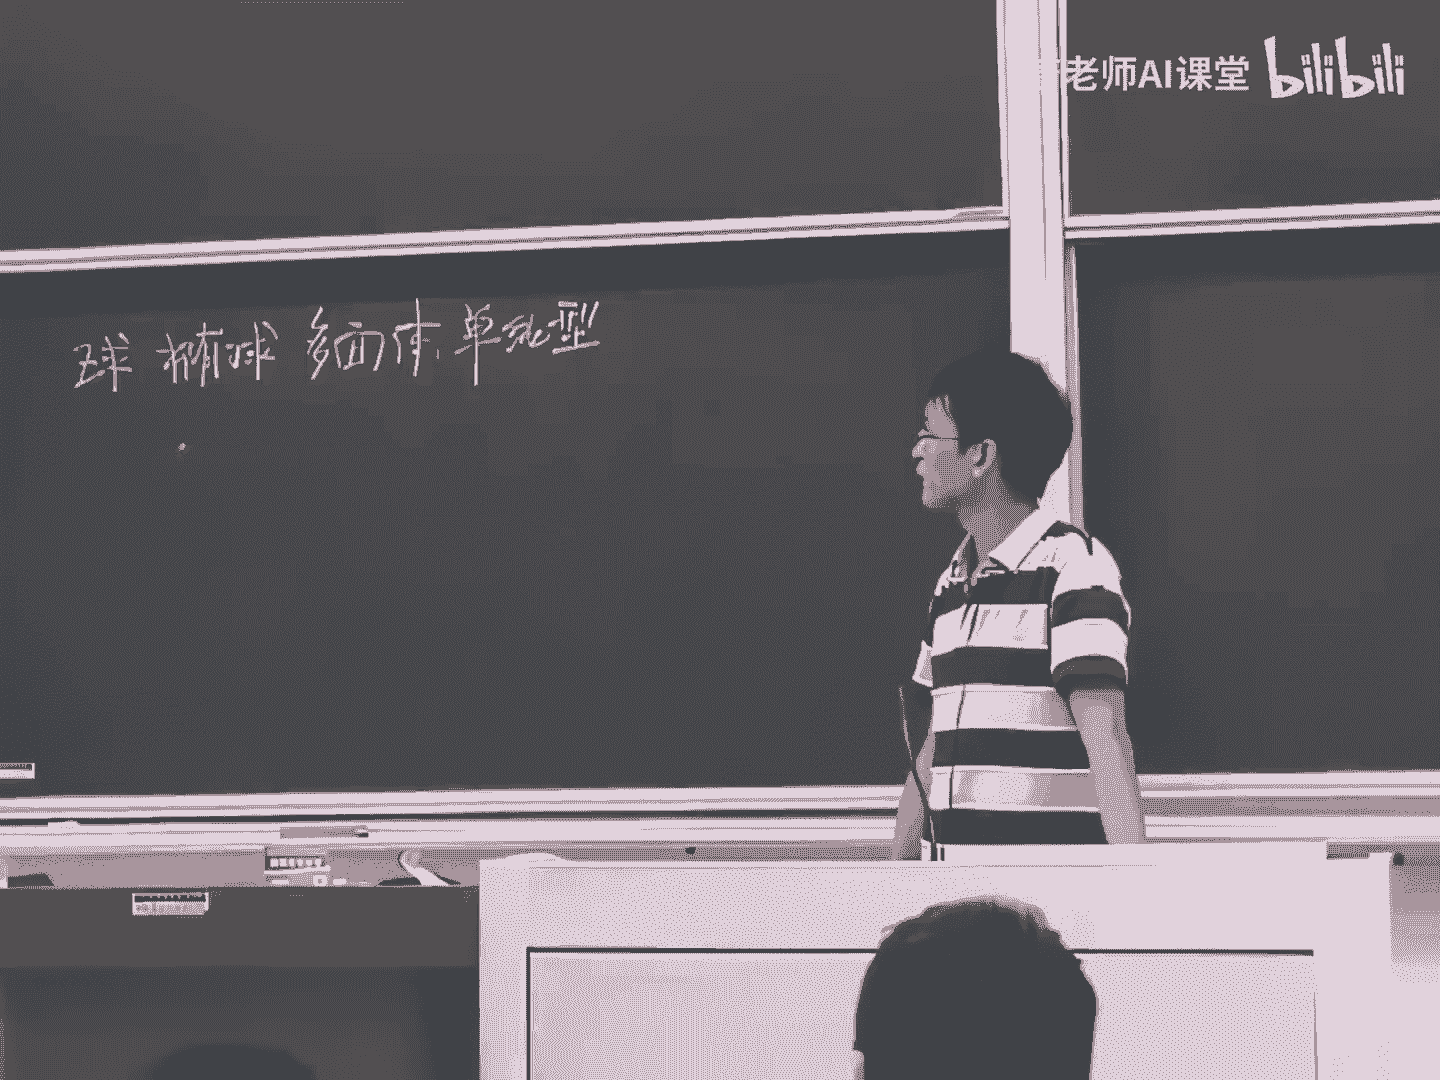 老师AI课堂 bilibili
球 椭球 多面体 单纯型